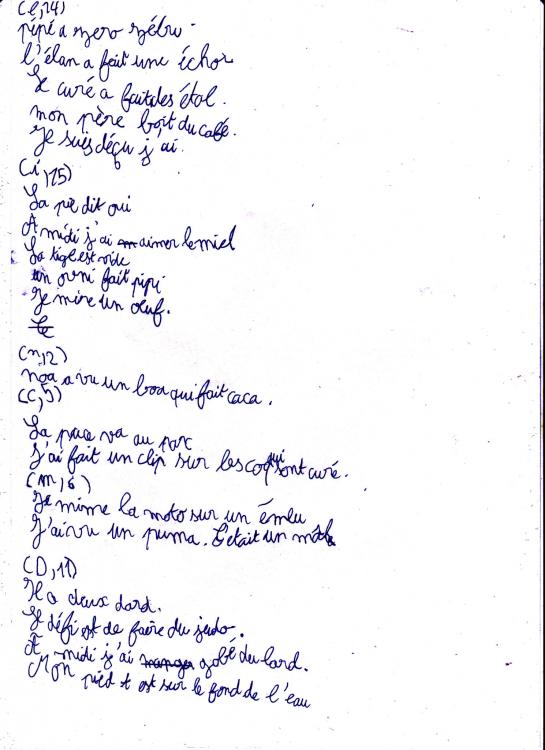 (é,14)
pépé a zero zébu.
l'élan a fait une échor
Le curé a faitdes étol.
mon père boit du café.
Je suis déçu j'ai.
(i,15)
La pie dit oui
A midi j'ai aimer le miel
La tige est vide
un ovni fait pipi
Je mire un oeuf.
(n,2)
noa a vu un boa qui fait caca.
(C,5)
La puce va au parc
J'ai fait un clip sur les coq qui sont curé.
(m,6)
Je mime la moto sur un émeu
J'ai vu un puma. C'était un
(D,11)
Il a deux dard.
Le défi est de faire du judo.
A midi j'ai gobé du lard.
Mon pied est sur le fond de l'eau